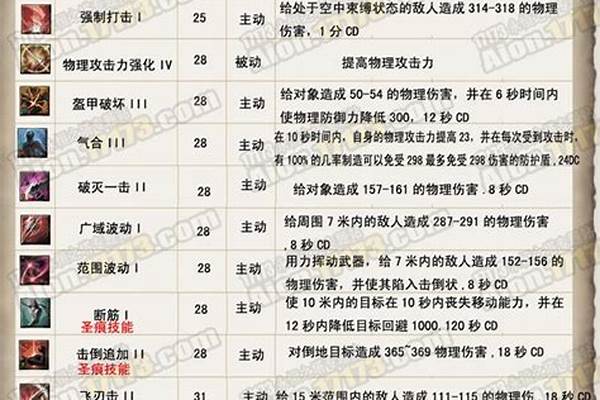 强制打击 I 25 主动 给处于空中束缚状态的敌人造成 314-318 的物理
伤害，1 分 CD
物理攻击力强化 IV 28 被动 提高物理攻击力
盔甲破坏 III 28 主动 给对象造成 50-54 的物理伤害，并在 6 秒时间内
使物理防御力降低 300, 12 秒 CD
气合 III 28 主动 在 10 秒时间内，自身的物理攻击力提高 23，并在每次受到攻击时，
有 100% 的几率制造可以免受 298 最多免受 298 伤害的防护盾, 24DC
破灭一击 II 28 主动 给对象造成 157-161 的物理伤害 . 8 秒 CD
广域波动 I 28 主动 给周围 7 米内的敌人造成 287-291 的物理伤害
, 8 秒 CD
范围波动 I 28 主动 用力挥动武器，给 7 米内的敌人造成 152-156 的
物理伤害，并使其陷入击倒状, 8 秒 CD
断筋 I 28 主动 使 10 米内的目标在 10 秒内丧失移动能力，并在
圣痕技能 12 秒内降低目标回避 1000, 120 秒 CD
击倒追加 II 28 主动 对倒地目标造成 365~369 物理伤害, 18 秒 CD
圣痕技能
飞刃击 II 31 主动 给 15 米范围内的敌人造成 111-115 的物理伤, 18 秒